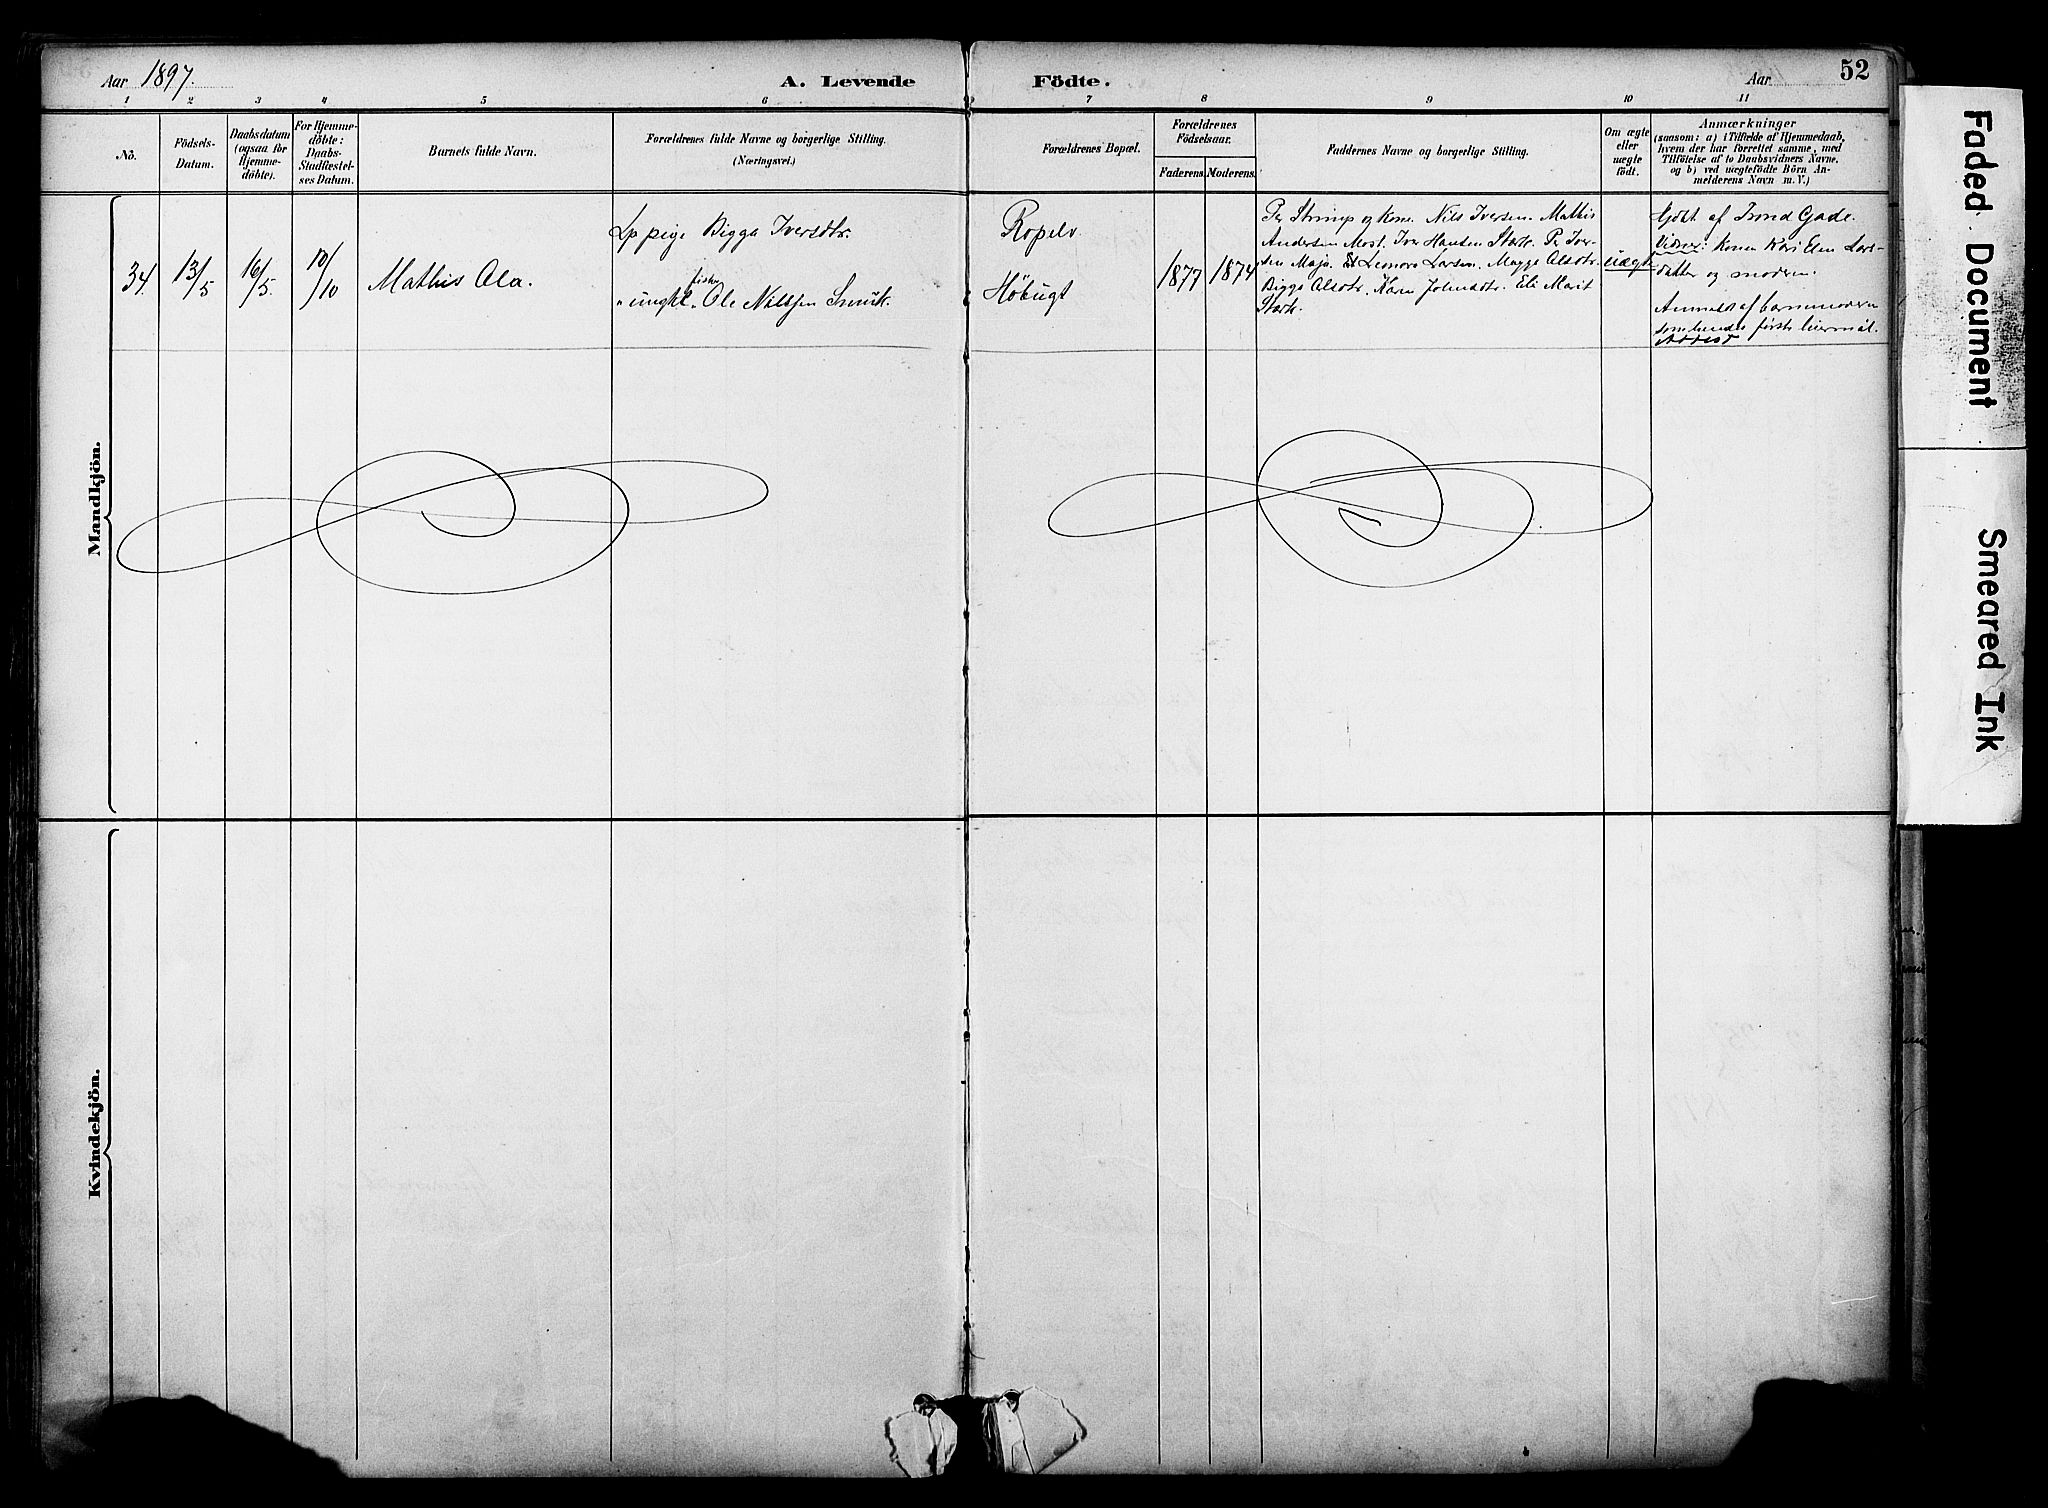 Aar 1897.
A. Levende Födte.
Aar
52
1 2 3 4 5 6 7 8 9 10 11
No.
Födsels-
Datum.
Daabsdatum
(ogsaa for
Hjemme-
döbte).
For Hjemme-
döbte:
Daabs-
Stadfæstel-
ses Datum.
Barnets fulde Navn.
Forældrenes fulde Navne og borgerlige Stilling.
(Næringsvei.)
Forældrenes Bopæl.
Forældrenes
Födselsaar.
Faderens. Moderens.
Faddernes Navne og borgerlige Stilling.
Om ægte
eller
uægte
födt.
Anmærkninger
(saasom: a) i Tilfælde af Hjemmedaab,
hvem der har forrettet samme, med
Tilföielse af to Daabsvidners Navne,
og b) ved uægtefödte Börn An-
melderens Navn m. V.)
Mandkjön.
34.
13/5
16/5.
10/10
Mathis Ola.
Lp pige Bigga Iversdtr.
fisker
"ungkl" Ole Nilssen Smuk.
Ropelv
Höbugt
1877
1874
Per Strimp og Kone. Nils Iversen. Mathis
Andersen Most. Iver Hansen Stærk. Per Iver-
sen Maja. Leonore Larsen. Magga Olsdtr.
Bigga Olsdtr. Karen Johnsdtr. Eli Marit
Stærk.
uægte
Gjdbt af Trond Gade.
Vidner: Konen Kari Elen Lars-
datter og modern.
Anmeldt af barnemodern
som hendes förste leiermål.
Attest
Kvindekjön.
Faded Document
Smeared Ink